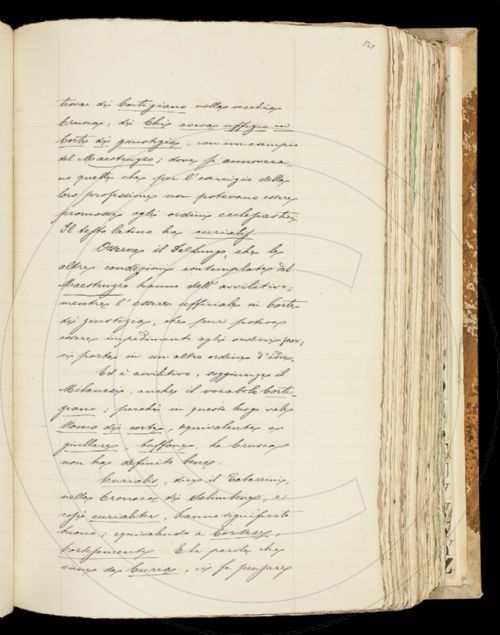 527
trova di Cortigiano nella vecchia
Crusca, di Chi aveva uffizio in
Corte di giustizia, con un esempio
del Maestruzzo; dove si annovera
no quelli che per l'esercizio della
loro professione non potevano essere
promossi agli ordini ecclesiastici
Il testo latino ha curialis.
Osserva il Fedungo, che le
altre condizioni contemplate dal
Maestruzzo hanno dell'avvilitivo;
mentre l'essere ufficiale in Corte
di giustizia, che pur poteva
essere impedimento agli ordini sacri,
ci porta in un altro ordine d'idee.
Ed è avvilitivo, soggiunge il
Milanesi, anche il vocabolo Corti-
giano; perchè in questo luogo vale
Uomo di corte, equivalente a
giullare, buffone. La Crusca
non ha definito bene.
Curialis, dice il Tabarrini,
nella Cronaca di Salimbene, e
così curialiter, hanno significato
buono; equivalendo a Cortese,
Cortesemente. E la parola che
viene da Curia, ci fa pensare